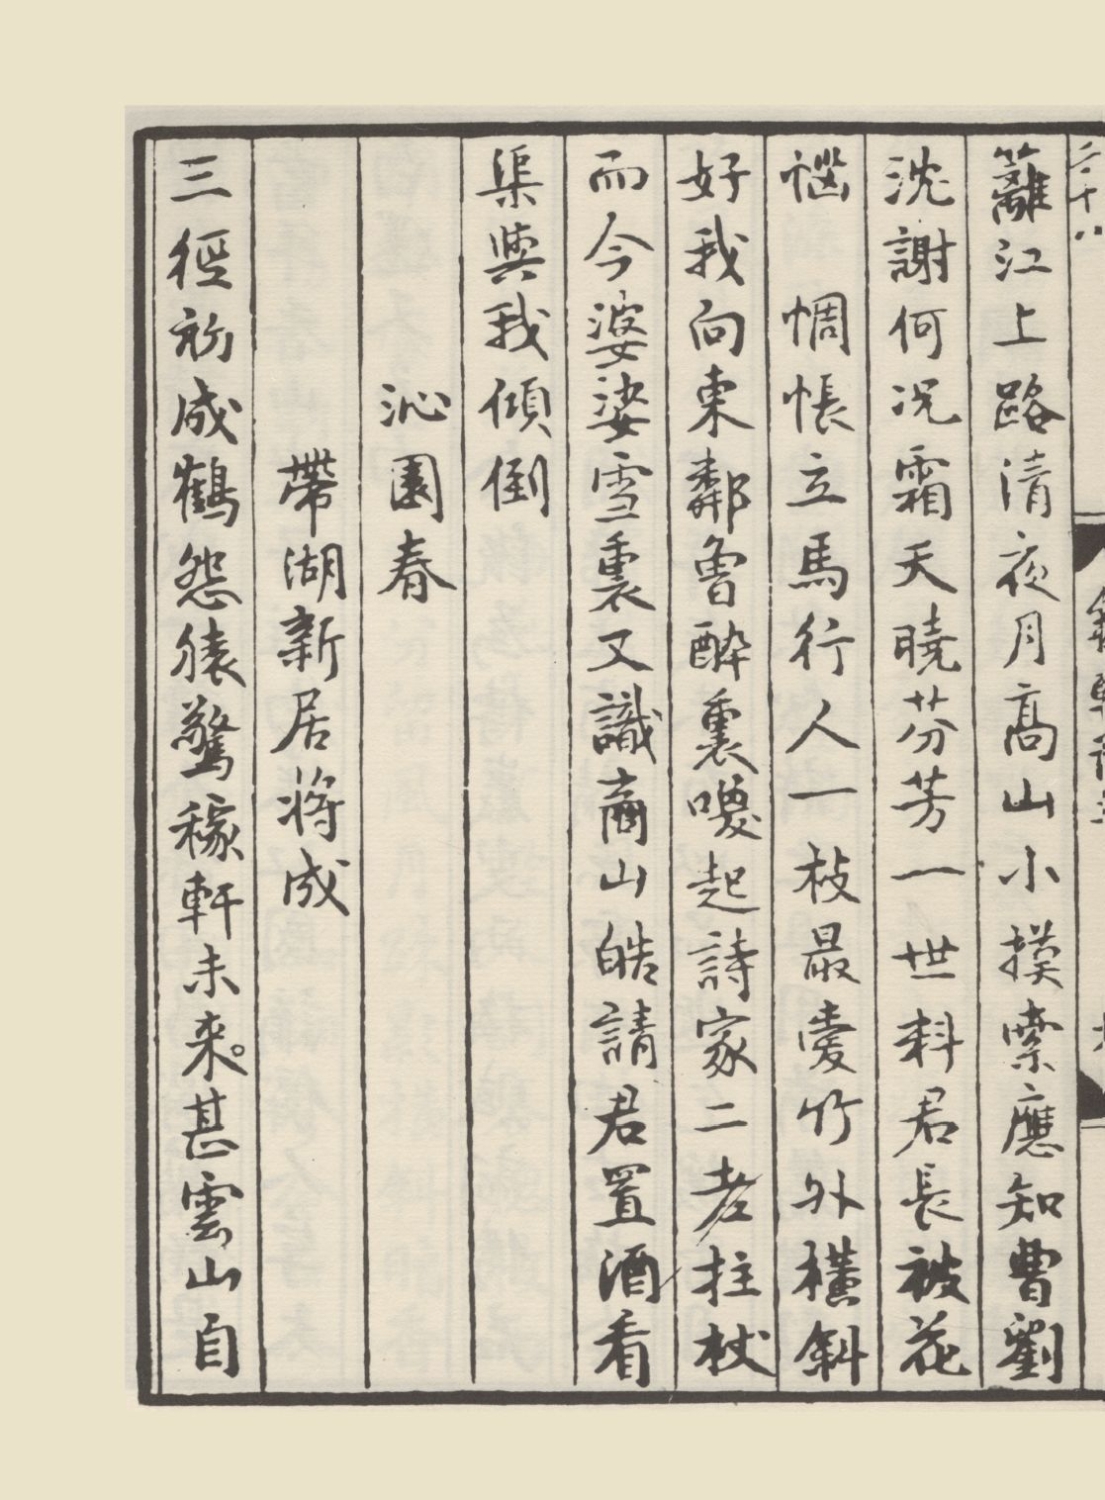 二十八
籬江上路清夜月高山小摸索應知曹劉
沈謝何況霜天曉芬芳一世料君長被花
惱　惆悵立馬行人一枝最愛竹外橫斜
好我向東鄰曾醉裏喚起詩家二老拄杖
而今婆娑雪裏又識商山皓請君置酒看
渠與我傾倒
沁園春
帶湖新居將成
三徑初成鶴怨猿驚稼軒未來。甚雲山自